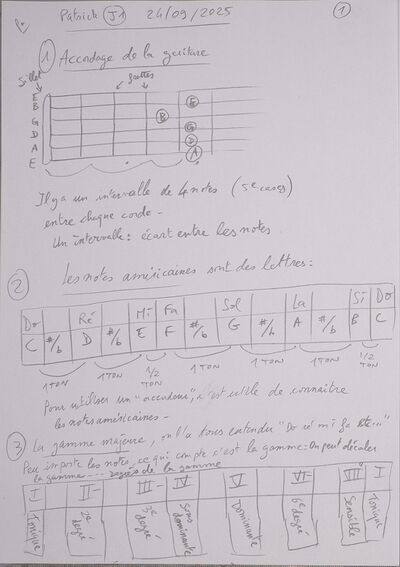 Patrick J1 24/09/2025 1
1 Accordage de la guitare
Sillet frettes
E
B
G
D
A
E
E
B
G
D
A
Il y a un intervalle de 4 notes (5e cases)
entre chaque corde -
Un intervalle : écart entre les notes
2 Les notes américaines sont des lettres :
Do Ré Mi Fa Sol La Si Do
C #/b D #/b E F #/b G #/b A #/b B C
1 TON 1 TON 1/2 TON 1 TON 1 TON 1 TON 1/2 TON
Pour utiliser un "accordeur", c'est utile de connaître
les notes américaines -
3 La gamme majeure, on l'a tous entendu "Do ré mi fa etc..."
Peu importe les notes, ce qui compte c'est la gamme : On peut décaler
la gamme ---- degrés de la gamme
I II- III- IV V VI- VII I
Tonique 2e degré 3e degré Sous dominante Dominante 6e degré Sensible Tonique